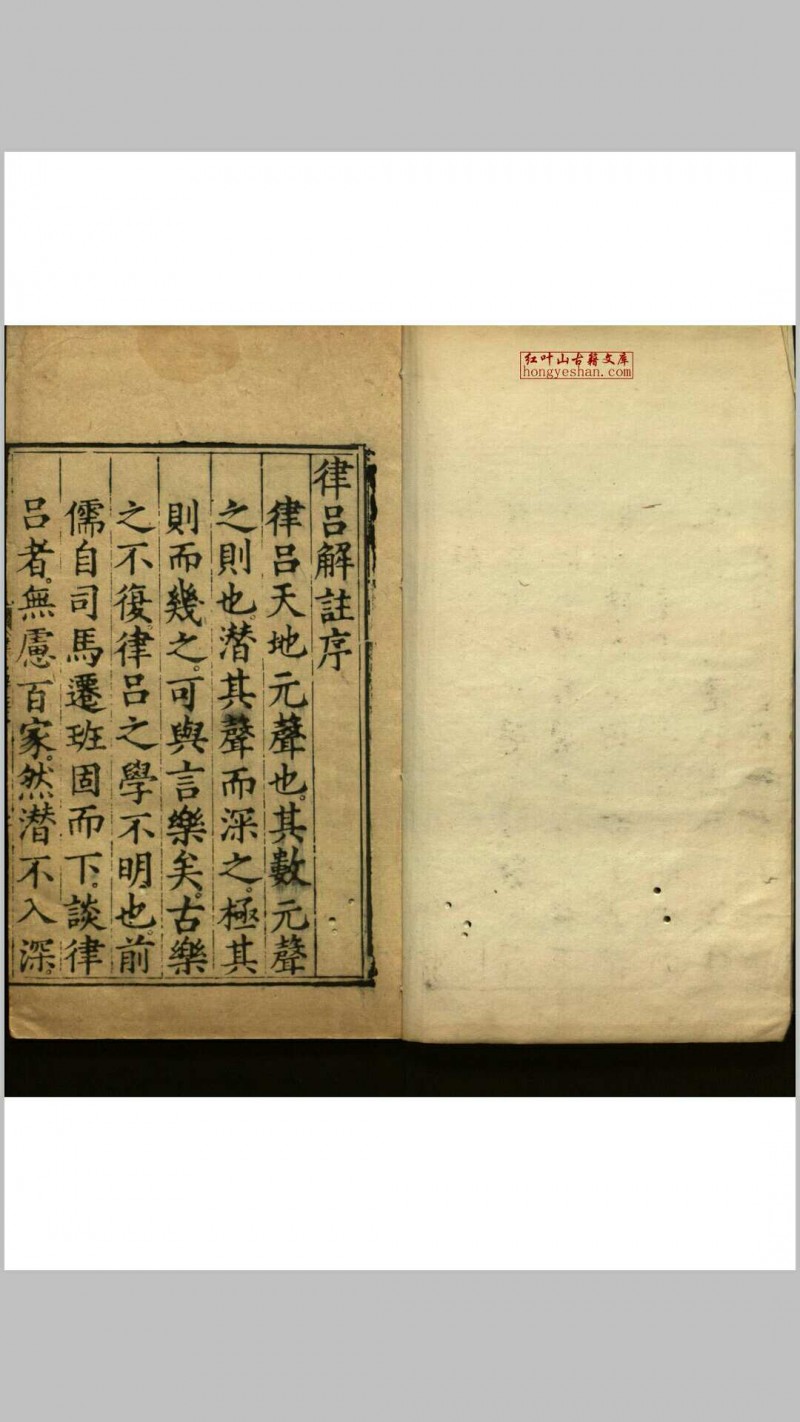 红叶山古籍文库
hongyeshan.com
律呂解註序
律呂天地元聲也。其數元聲
之則也。潛其聲而深之。極其
則而幾之。可與言樂矣。古樂
之不復。律呂之學不明也。前
儒自司馬遷班固而下。談律
呂者。無慮百家。然潛不入深。